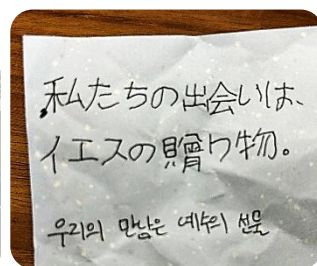 私たちの出会いは、
イエスの贈り物。
우리의 만남은 예수의 선물